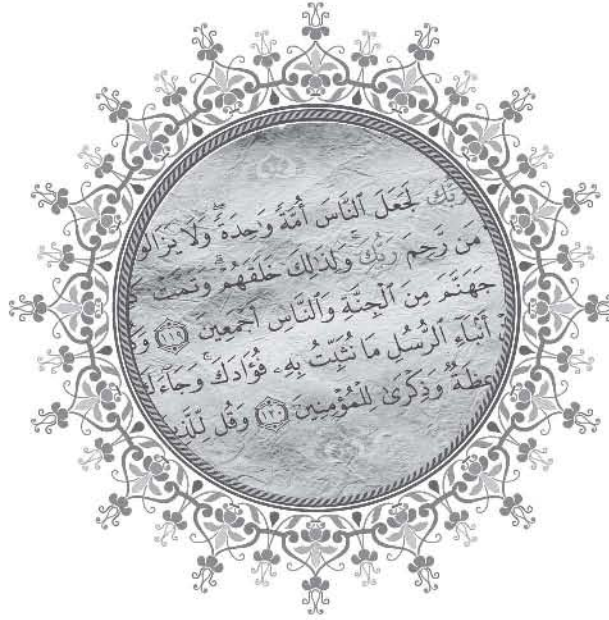 رَبُّكَ لَجَعَلَ ٱلنَّاسَ أُمَّةً وَٰحِدَةً ۖ وَلَا يَزَالُو
مَن رَّحِمَ رَبُّكَ ۚ وَلِذَٰلِكَ خَلَقَهُمْ ۗ وَتَمَّتْ
جَهَنَّمَ مِنَ ٱلْجِنَّةِ وَٱلنَّاسِ أَجْمَعِينَ ١١٩
أَنۢبَآءِ ٱلرُّسُلِ مَا نُثَبِّتُ بِهِۦ فُؤَادَكَ ۚ وَجَآءَكَ
عِظَةٌ وَذِكْرَىٰ لِلْمُؤْمِنِينَ ١٢٠ وَقُل لِّلَّذِي